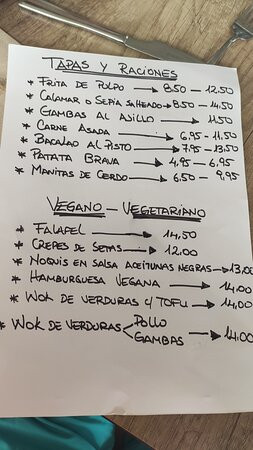 TAPAS Y RACIONES
* FRITA DE PULPO → 8.50 - 12.50
* CALAMAR O SEPIA SALTEADO → 8.50 - 14.50
* GAMBAS AL AJILLO → 11.50
* CARNE ASADA → 6.95 - 11.50
* BACALAO AL PISTO → 7.95 - 13.50
* PATATA BRAVA → 4.95 - 6.95
* MANITAS DE CERDO → 6.50 - 9.95
VEGANO - VEGETARIANO
* FALAFEL → 14,50
* CREPES DE SETAS → 12.00
* ÑOQUIS EN SALSA ACEITUNAS NEGRAS → 13,00
* HAMBURGUESA VEGANA → 14.00
* WOK DE VERDURAS Y TOFU → 14,00
* WOK DE VERDURAS < POLLO
GAMBAS → 14.00